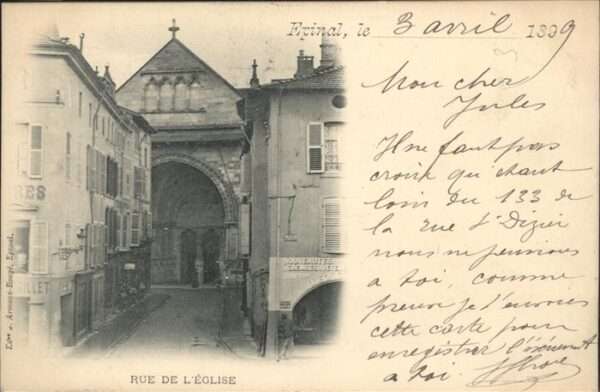 Epinal, le 3 avril 1899
Mon cher
Jules
Il ne faut pas
croire qu'étant
loin du 133 de
la rue St Dizier
nous ne pensions
à toi, comme
preuve je t'envoies
cette carte pour
enregistrer
à toi.
RES
LLET
Edon. Armand-Bompf, Epinal.
RUE DE L'ÉGLISE